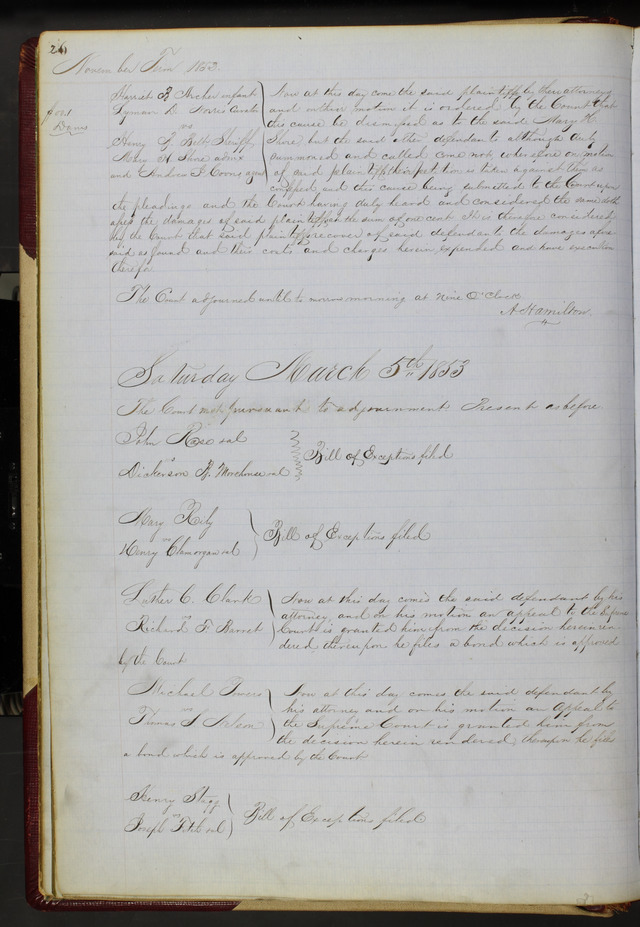 26
November Term 1853
Harriet R Archer infant Now at this day come the said plaintiffs by their attorney
Lyman D Norris Curator and on their motion it is ordered by the Court that
Davis
vs this cause be dismissed as to the said Mary H
Henry Belt Sheriff Shore but the said other defendants although duly
Mary H Shore admx summoned and called come not wherefore on motion
and Andrew J Coons agent of said plaintiffs their petition is taken against them as
confessed and this cause being submitted to the Court upon
the pleadings and the Court having duly heard and considered the same doth
assess the damages of said plaintiffs at the sum of one cent It is therefore considered
by the Court that said plaintiffs recover of said defendants the damages afore
said as found and their costs and charges herein expended and have execution
therefor
The Court adjourned until to morrow morning at Nine O'Clock
A Hamilton
Saturday March 5th 1853
The Court met pursuant to adjournment Present as before
John Rose et al
vs Bill of Exceptions filed
Dickerson Morehouse et al
Mary Rily
vs Bill of Exceptions filed
Henry Clamorgan et al
Luther C. Clark Now at this day comes the said defendant by his
vs attorney and on his motion an appeal to the Supreme
Richard F Barret Court is granted him from the decision herein ren
dered thereupon he files a bond which is approved
by the Court
Michael Now at this day comes the said defendant by
vs his attorney and on his motion an Appeal to
Thomas S Nelson the Supreme Court is granted him from
the decision herein rendered thereupon he files
a bond which is approved by the Court
Henry Stagg
vs Bill of Exceptions filed
Joseph et al